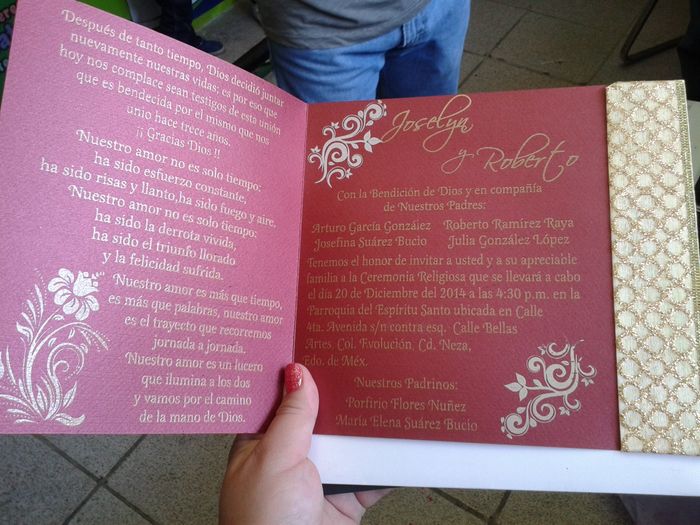 Después de tanto tiempo, Dios decidió juntar
nuevamente nuestras vidas; es por eso que
hoy nos complace sean testigos de esta unión
que es bendecida por el mismo que nos
unio hace trece años.
¡¡ Gracias Dios !!
Nuestro amor no es solo tiempo:
ha sido esfuerzo constante,
ha sido risas y llanto,ha sido fuego y aire.
Nuestro amor no es solo tiempo:
ha sido la derrota vivida,
ha sido el triunfo llorado
y la felicidad sufrida.
Nuestro amor es más que tiempo,
es más que palabras, nuestro amor
es el trayecto que recorremos
jornada a jornada.
Nuestro amor es un lucero
que ilumina a los dos
y vamos por el camino
de la mano de Dios.
Joselyn
y Roberto
Con la Bendición de Dios y en compañía
de Nuestros Padres:
Arturo García González Roberto Ramírez Raya
Josefina Suárez Bucio Julia González López
Tenemos el honor de invitar a usted y a su apreciable
familia a la Ceremonia Religiosa que se llevará a cabo
el día 20 de Diciembre del 2014 a las 4:30 p.m. en la
Parroquia del Espíritu Santo ubicada en Calle
4ta. Avenida s/n contra esq. Calle Bellas
Artes, Col. Evolución, Cd. Neza,
Edo. de Méx.
Nuestros Padrinos:
Porfirio Flores Nuñez
María Elena Suárez Bucio